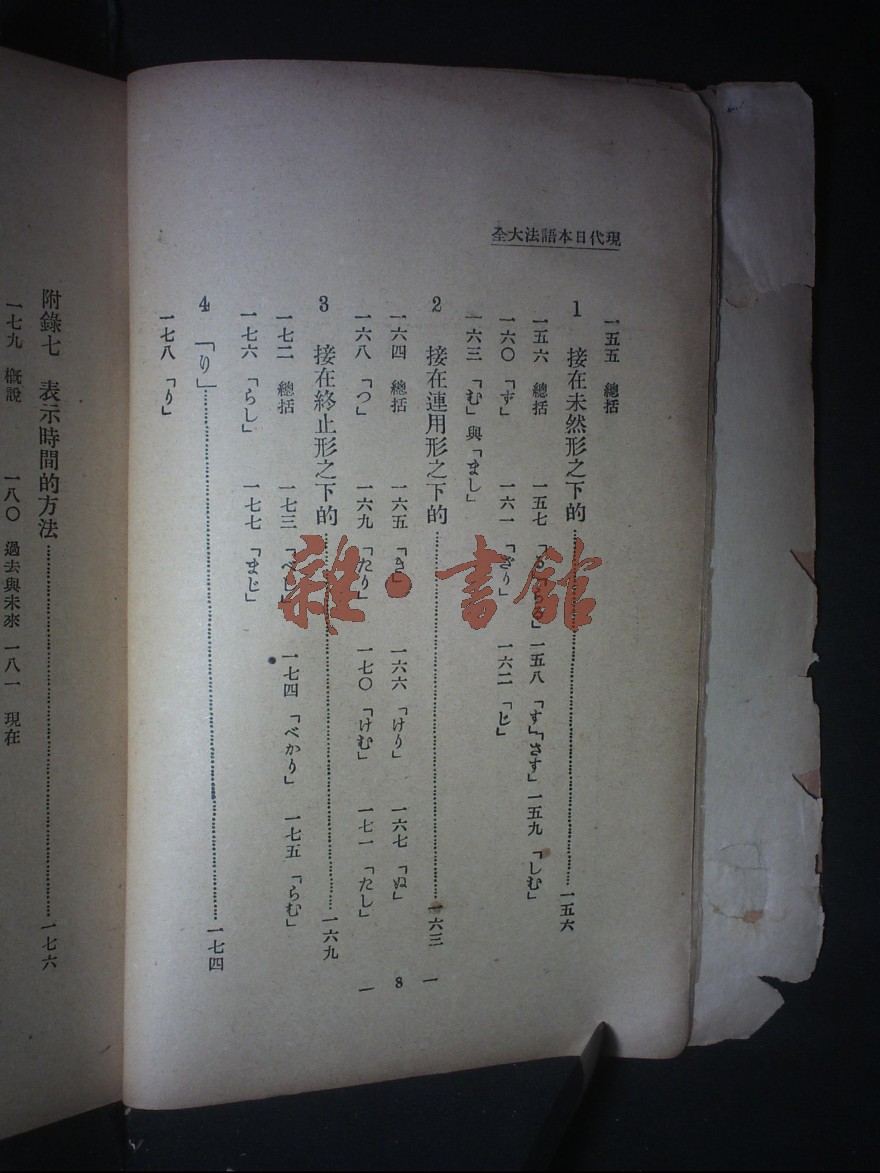 現代日本語法大全
一五五 總括
1 接在未然形之下的……一五六
一五六 總括 一五七 「る」「らる」 一五八 「す」「さす」 一五九 「しむ」
一六〇 「ず」 一六一 「ざり」 一六二 「じ」
一六三 「む」與「まし」
2 接在連用形之下的……一六三
一六四 總括 一六五 「き」 一六六 「けり」 一六七 「ぬ」
一六八 「つ」 一六九 「たり」 一七〇 「けむ」 一七一 「たし」
3 接在終止形之下的……一六九
一七二 總括 一七三 「べし」 一七四 「べかり」 一七五 「らむ」
一七六 「らし」 一七七 「まじ」
4 「り」……一七四
一七八 「り」
— 8 —
附錄七 表示時間的方法……一七六
一七九 概說 一八〇 過去與未來 一八一 現在
雜·書館